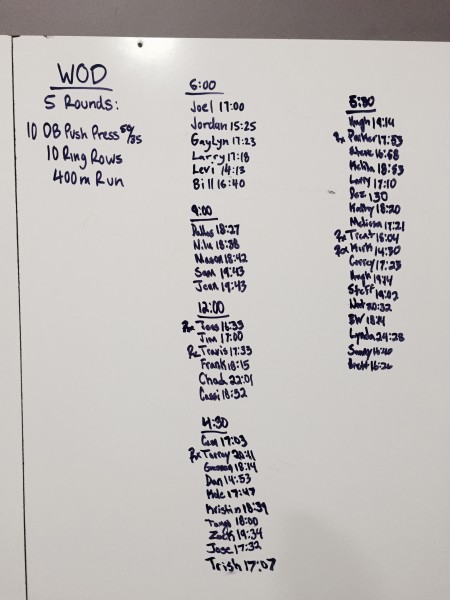 WOD
5 Rounds:
10 DB Push Press 50/35
10 Ring Rows
400m Run
6:00
Joel 17:00
Jordan 15:25
GayLyn 17:23
Larry 17:18
Levi 14:13
Bill 16:40
9:00
Dallas 18:27
18:38
Mason 18:42
Sam 19:43
Jean 19:43
12:00
Rx 16:33
Jim 17:00
Rx Travis 17:33
Frank 18:15
Chad 22:01
Cassi 18:32
4:30
Cam 17:03
Rx Torrey
18:14
Dan 14:53
17:47
Kristin 18:39
Tanya 18:00
Zack 19:34
Jose 17:32
Trish 17:07
5:30
Hugh 19:14
Rx Parker 17:53
Steve 16:58
18:53
Larry 17:10
Kathy 18:20
Melissa 17:21
Rx Trent 16:04
Rx Kirk 14:30
Correy 17:23
Hugh
Steff 19:02
20:32
BW
Lynda 24:28
Sunny 16:40
Brett 16:26